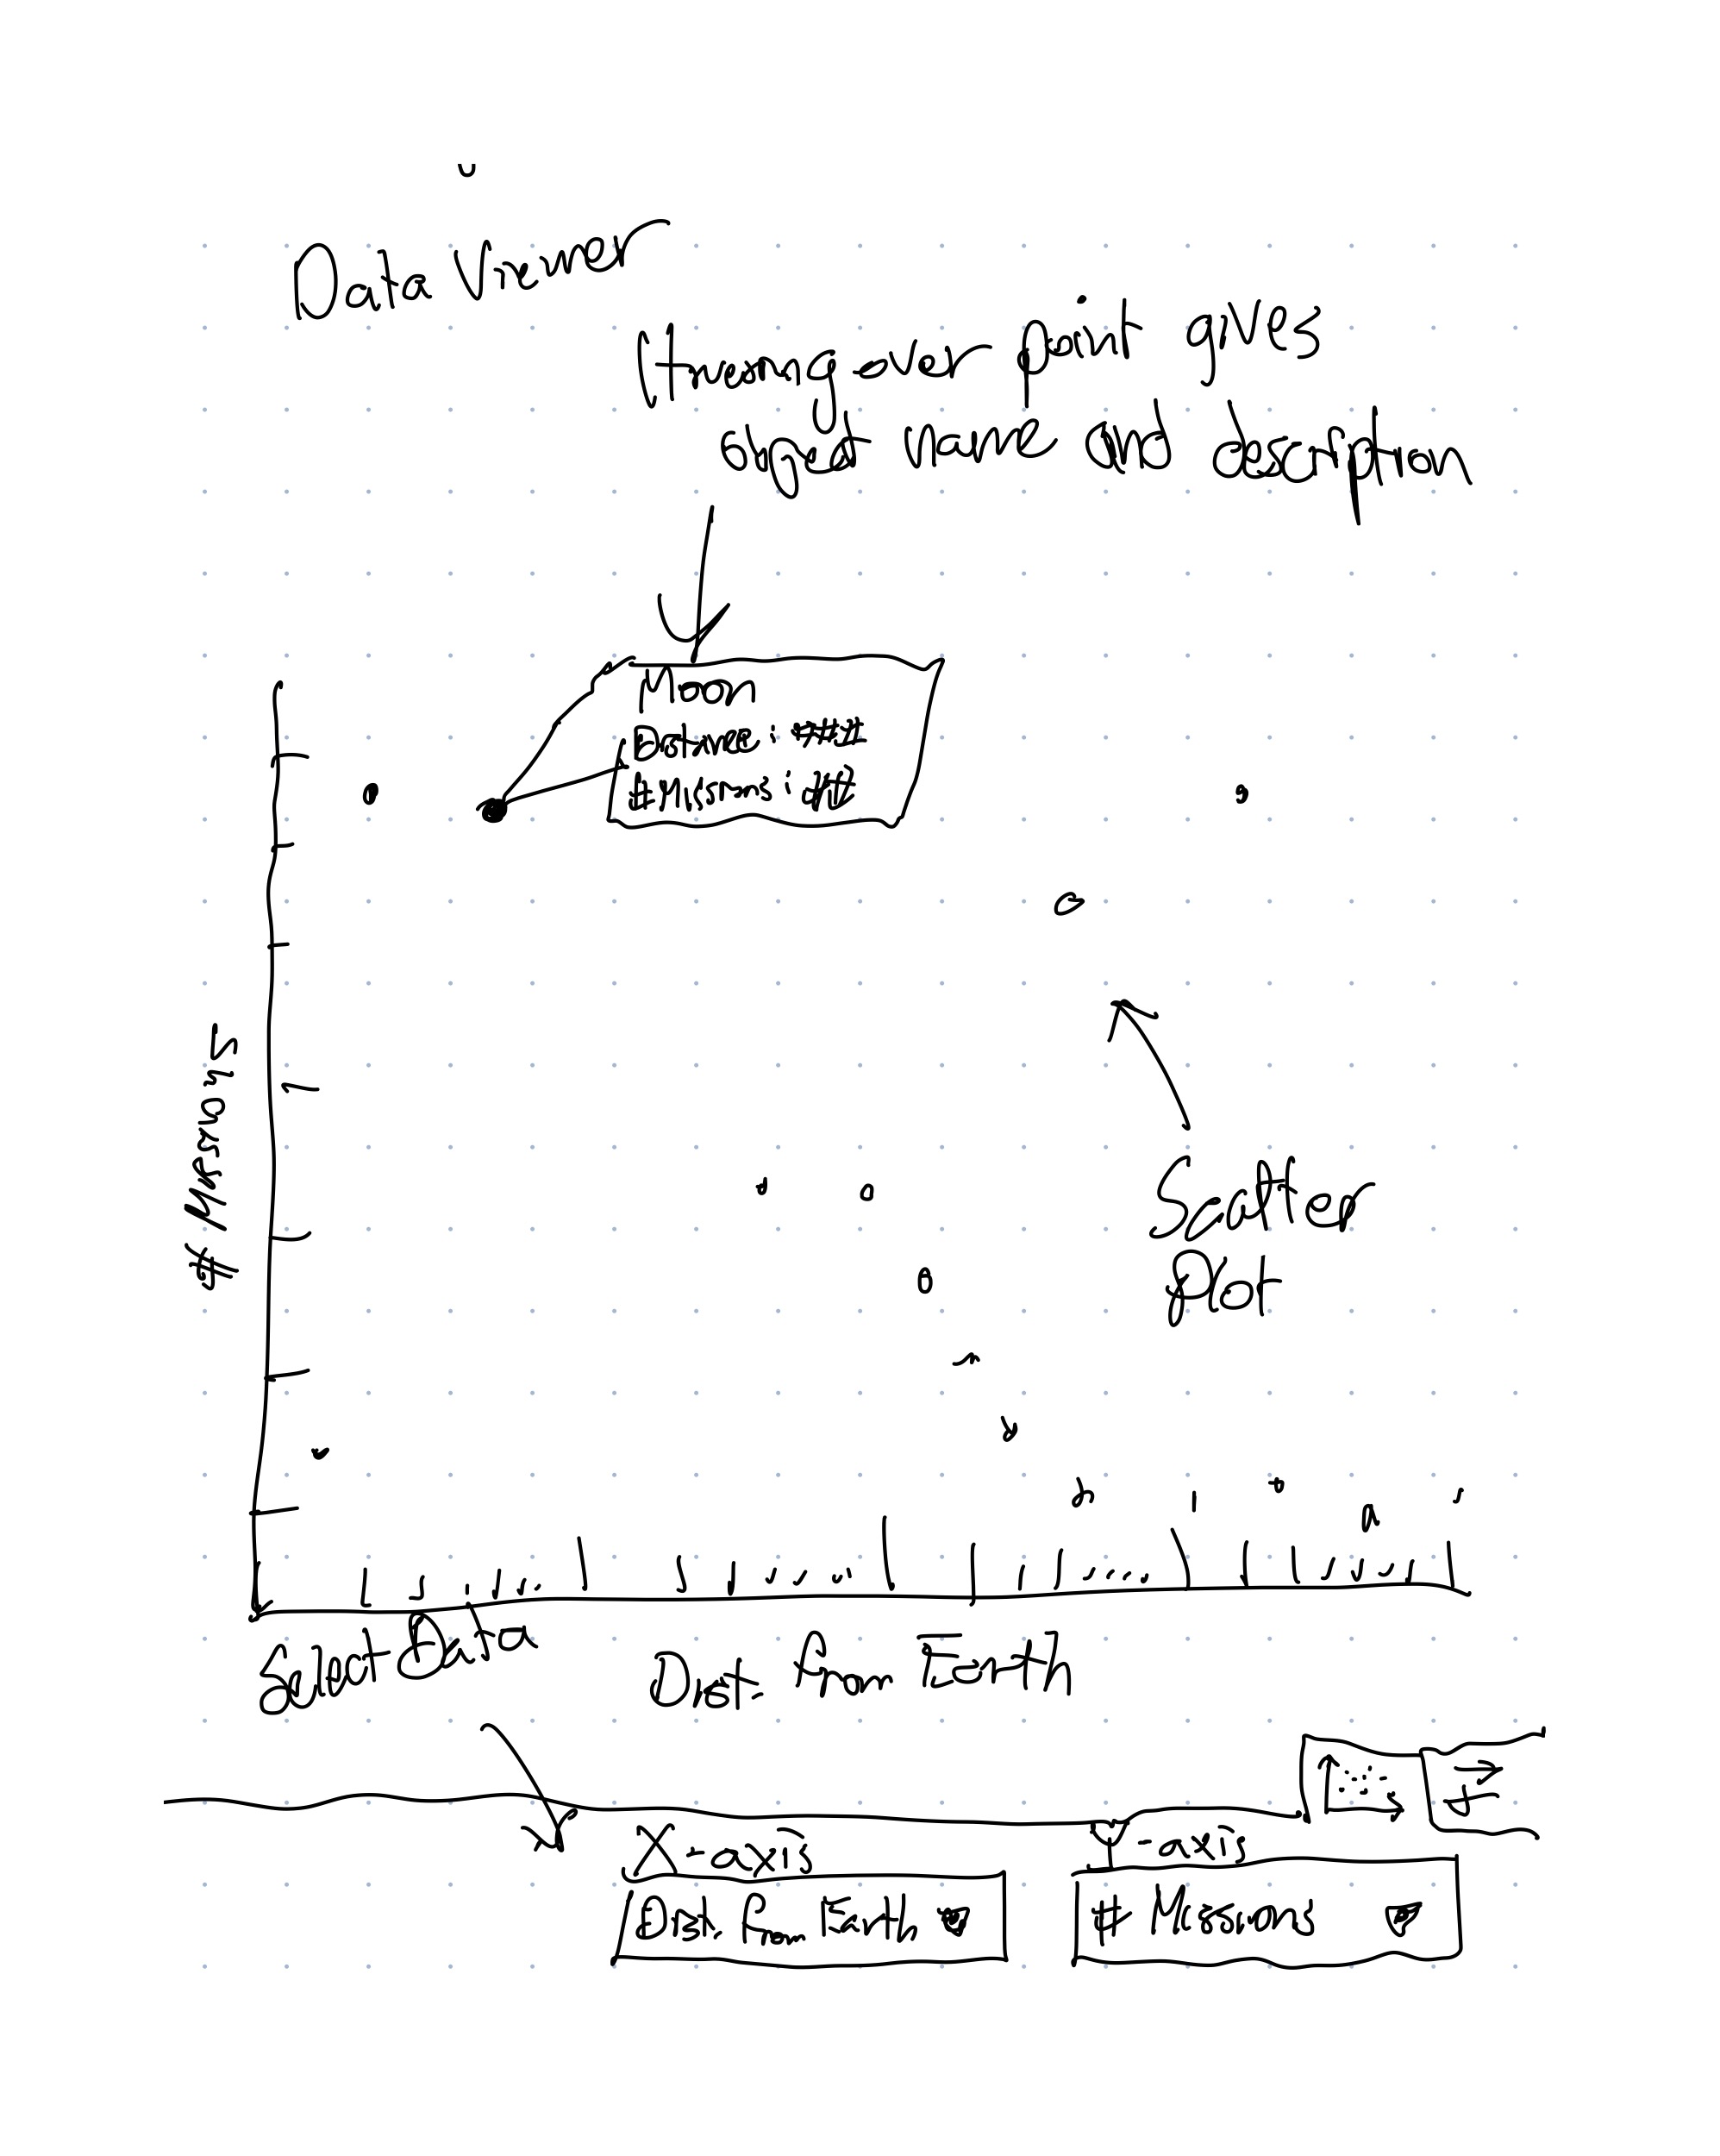 Data Viewer
Hovering over point gives
object name and description
Moon
Distance: ###
# Missions: ##
# Missions
Scatter
Plot
Select Data
Dist. from Earth
X-axis
Y-axis
Dist. from Earth
# Missions